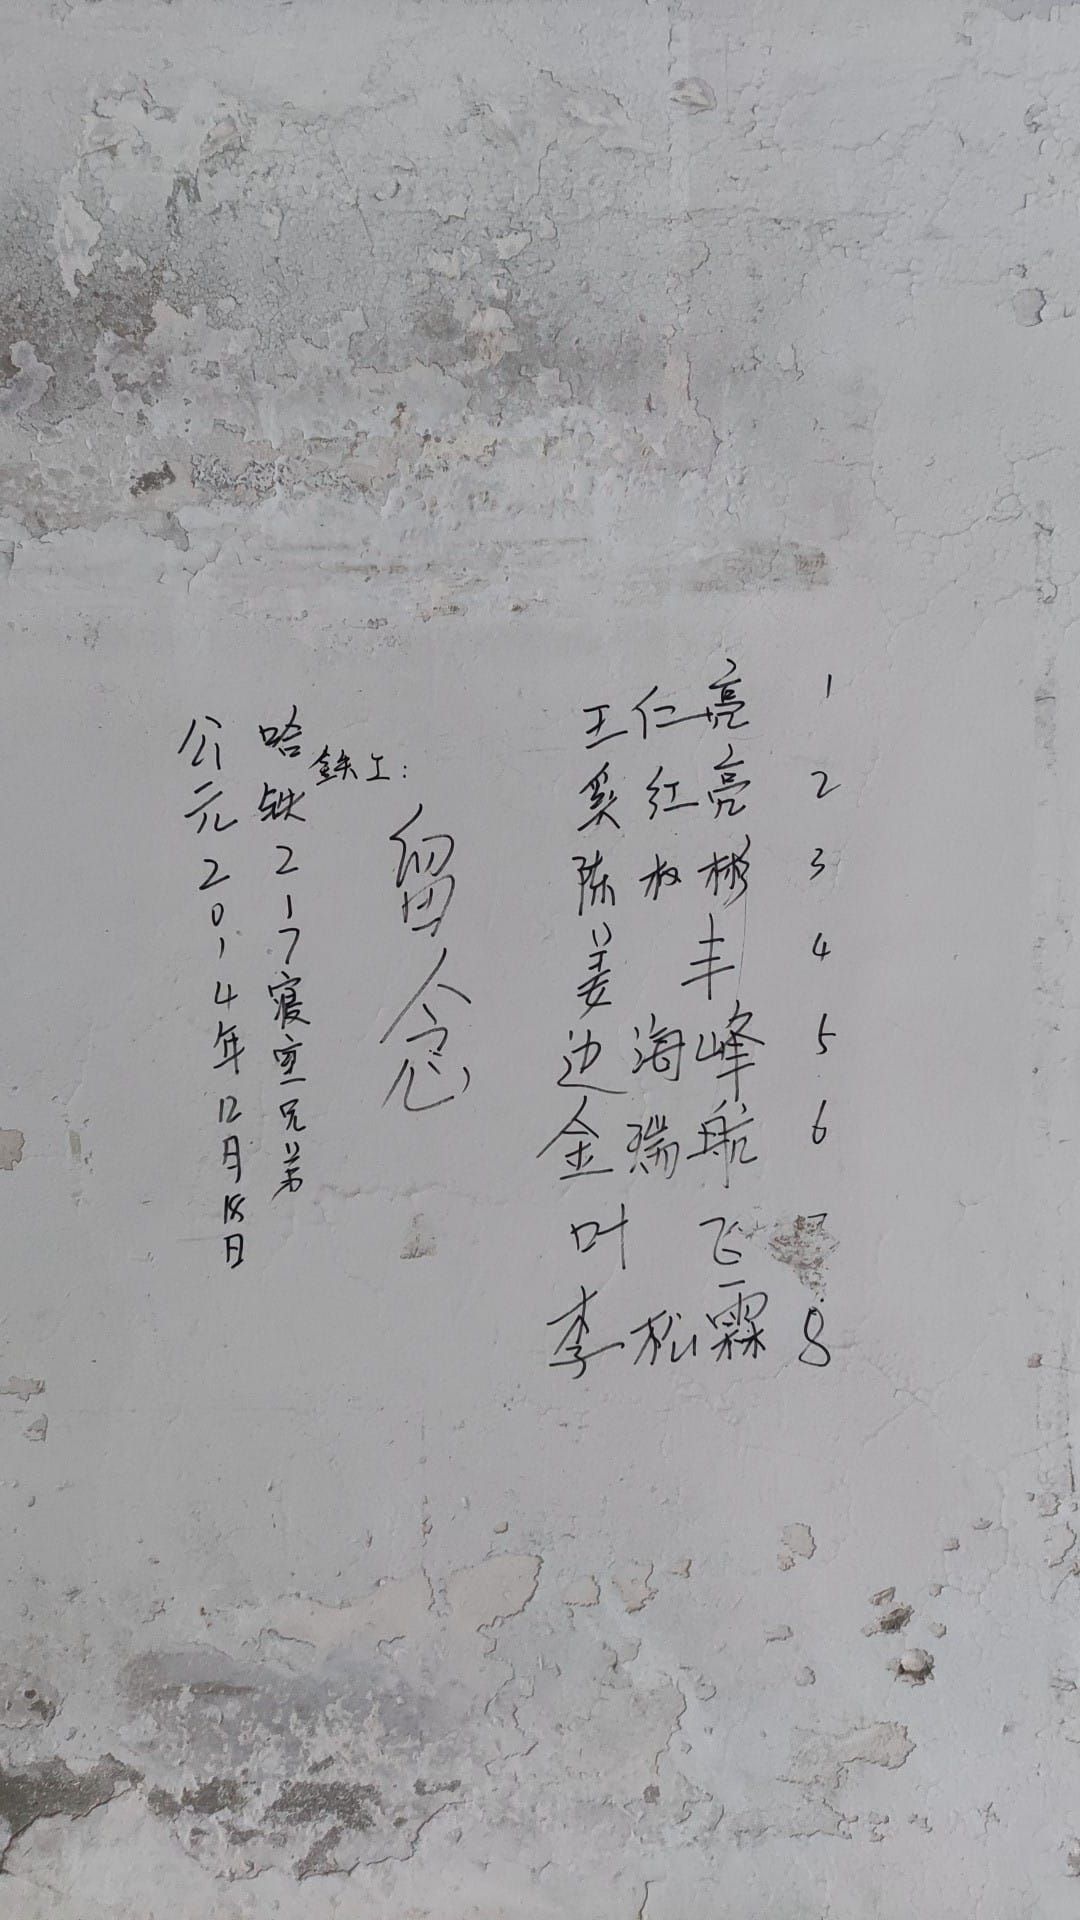 王仁亮 1
奚红亮 2
陈权彬 3
姜丰 4
边海峰 5
金瑞航 6
叶飞 7
李松霖 8
留念
鉄工:
哈铁217寝室兄弟
公元2014年12月18日